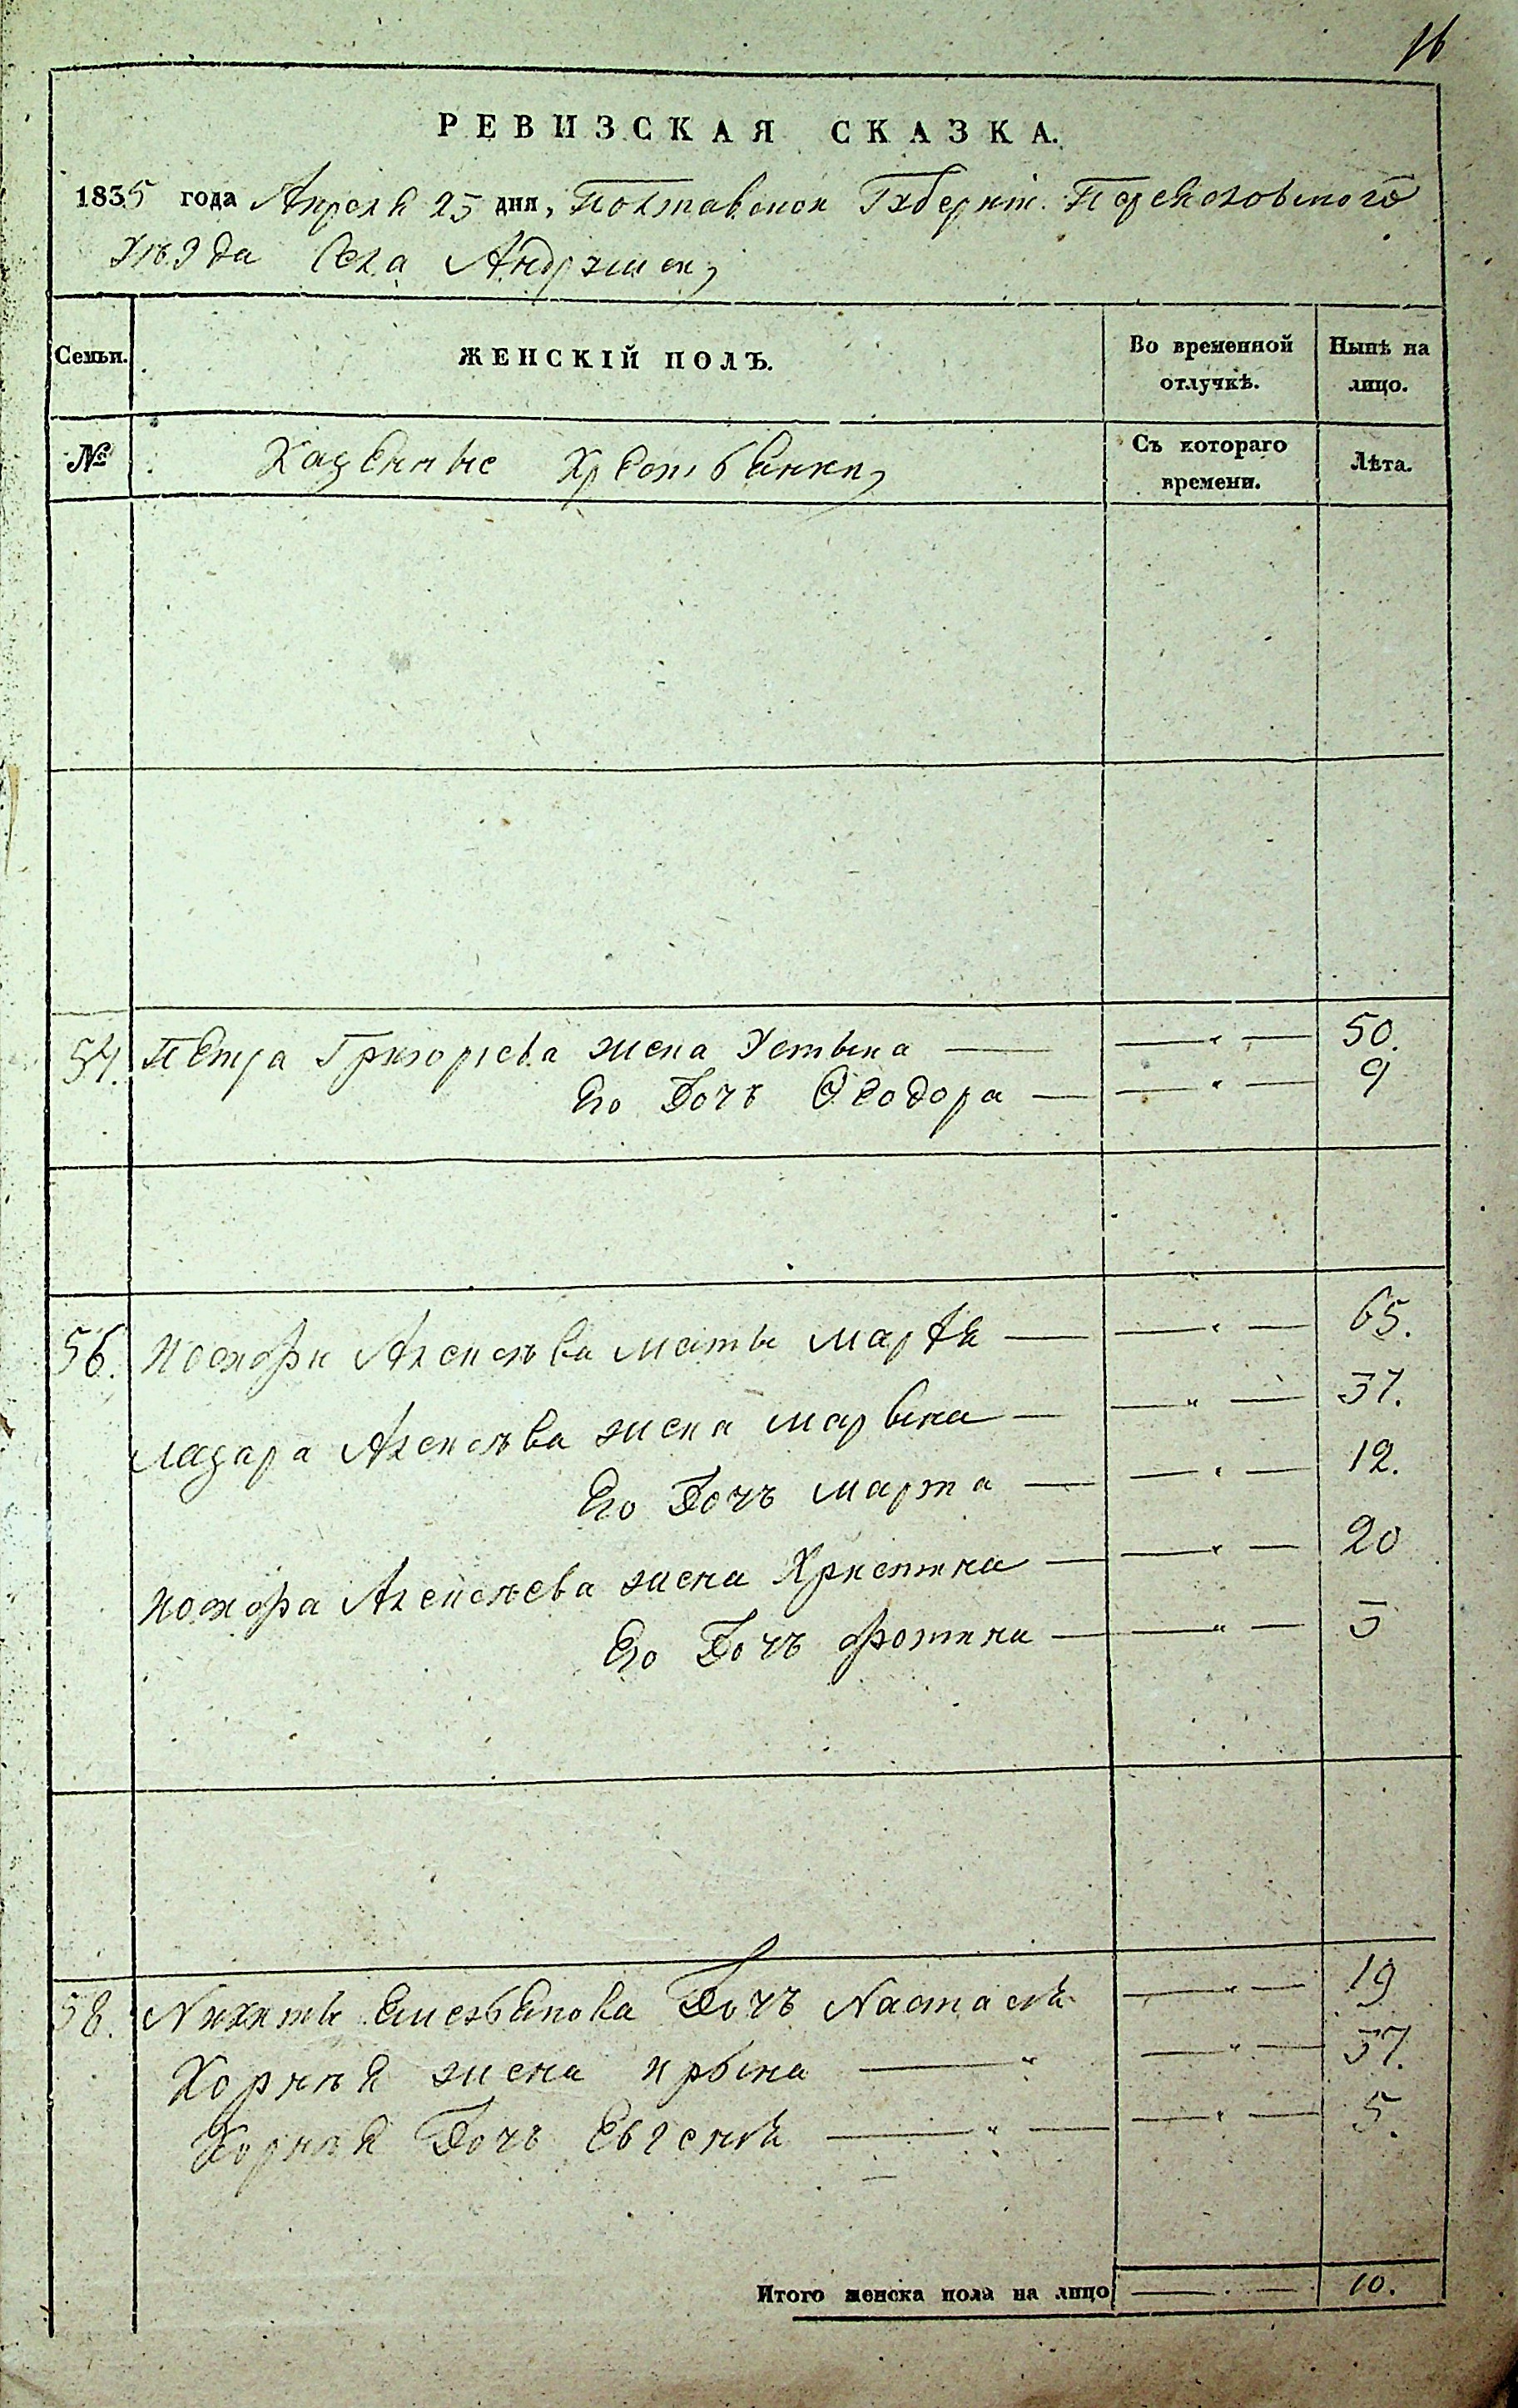 16
РЕВИЗСКАЯ СКАЗКА.
1835 года Апреля 25 дня, Полтавской Губерніи Переясловского
Уѣзда Села Андрушки,
Семьи. ЖЕНСКІЙ ПОЛЪ. Во временной отлучкѣ. Нынѣ на лицо.
№ Казенные Крестьянки, Съ котораго времени. Лѣта.
54. Петра Григорьева жена Устына — — " — 50.
Его Дочь Феодора — — " — 9
56. Алексѣева мать Марфа — — " — 65.
Лазара Алексѣва жена Марына — — " — 37.
Его Дочь Марта — — " — 12.
Алексѣева жена Христина — — " — 20
Его Дочь Фотина — — " — 5
58. Никиты Дочь Настасія — " — 19
Корнѣя жена Ирына — " — " — 37.
Корнѣя Дочь Евгенія — " — — " — 5.
Итого женска пола на лицо — . — 10.